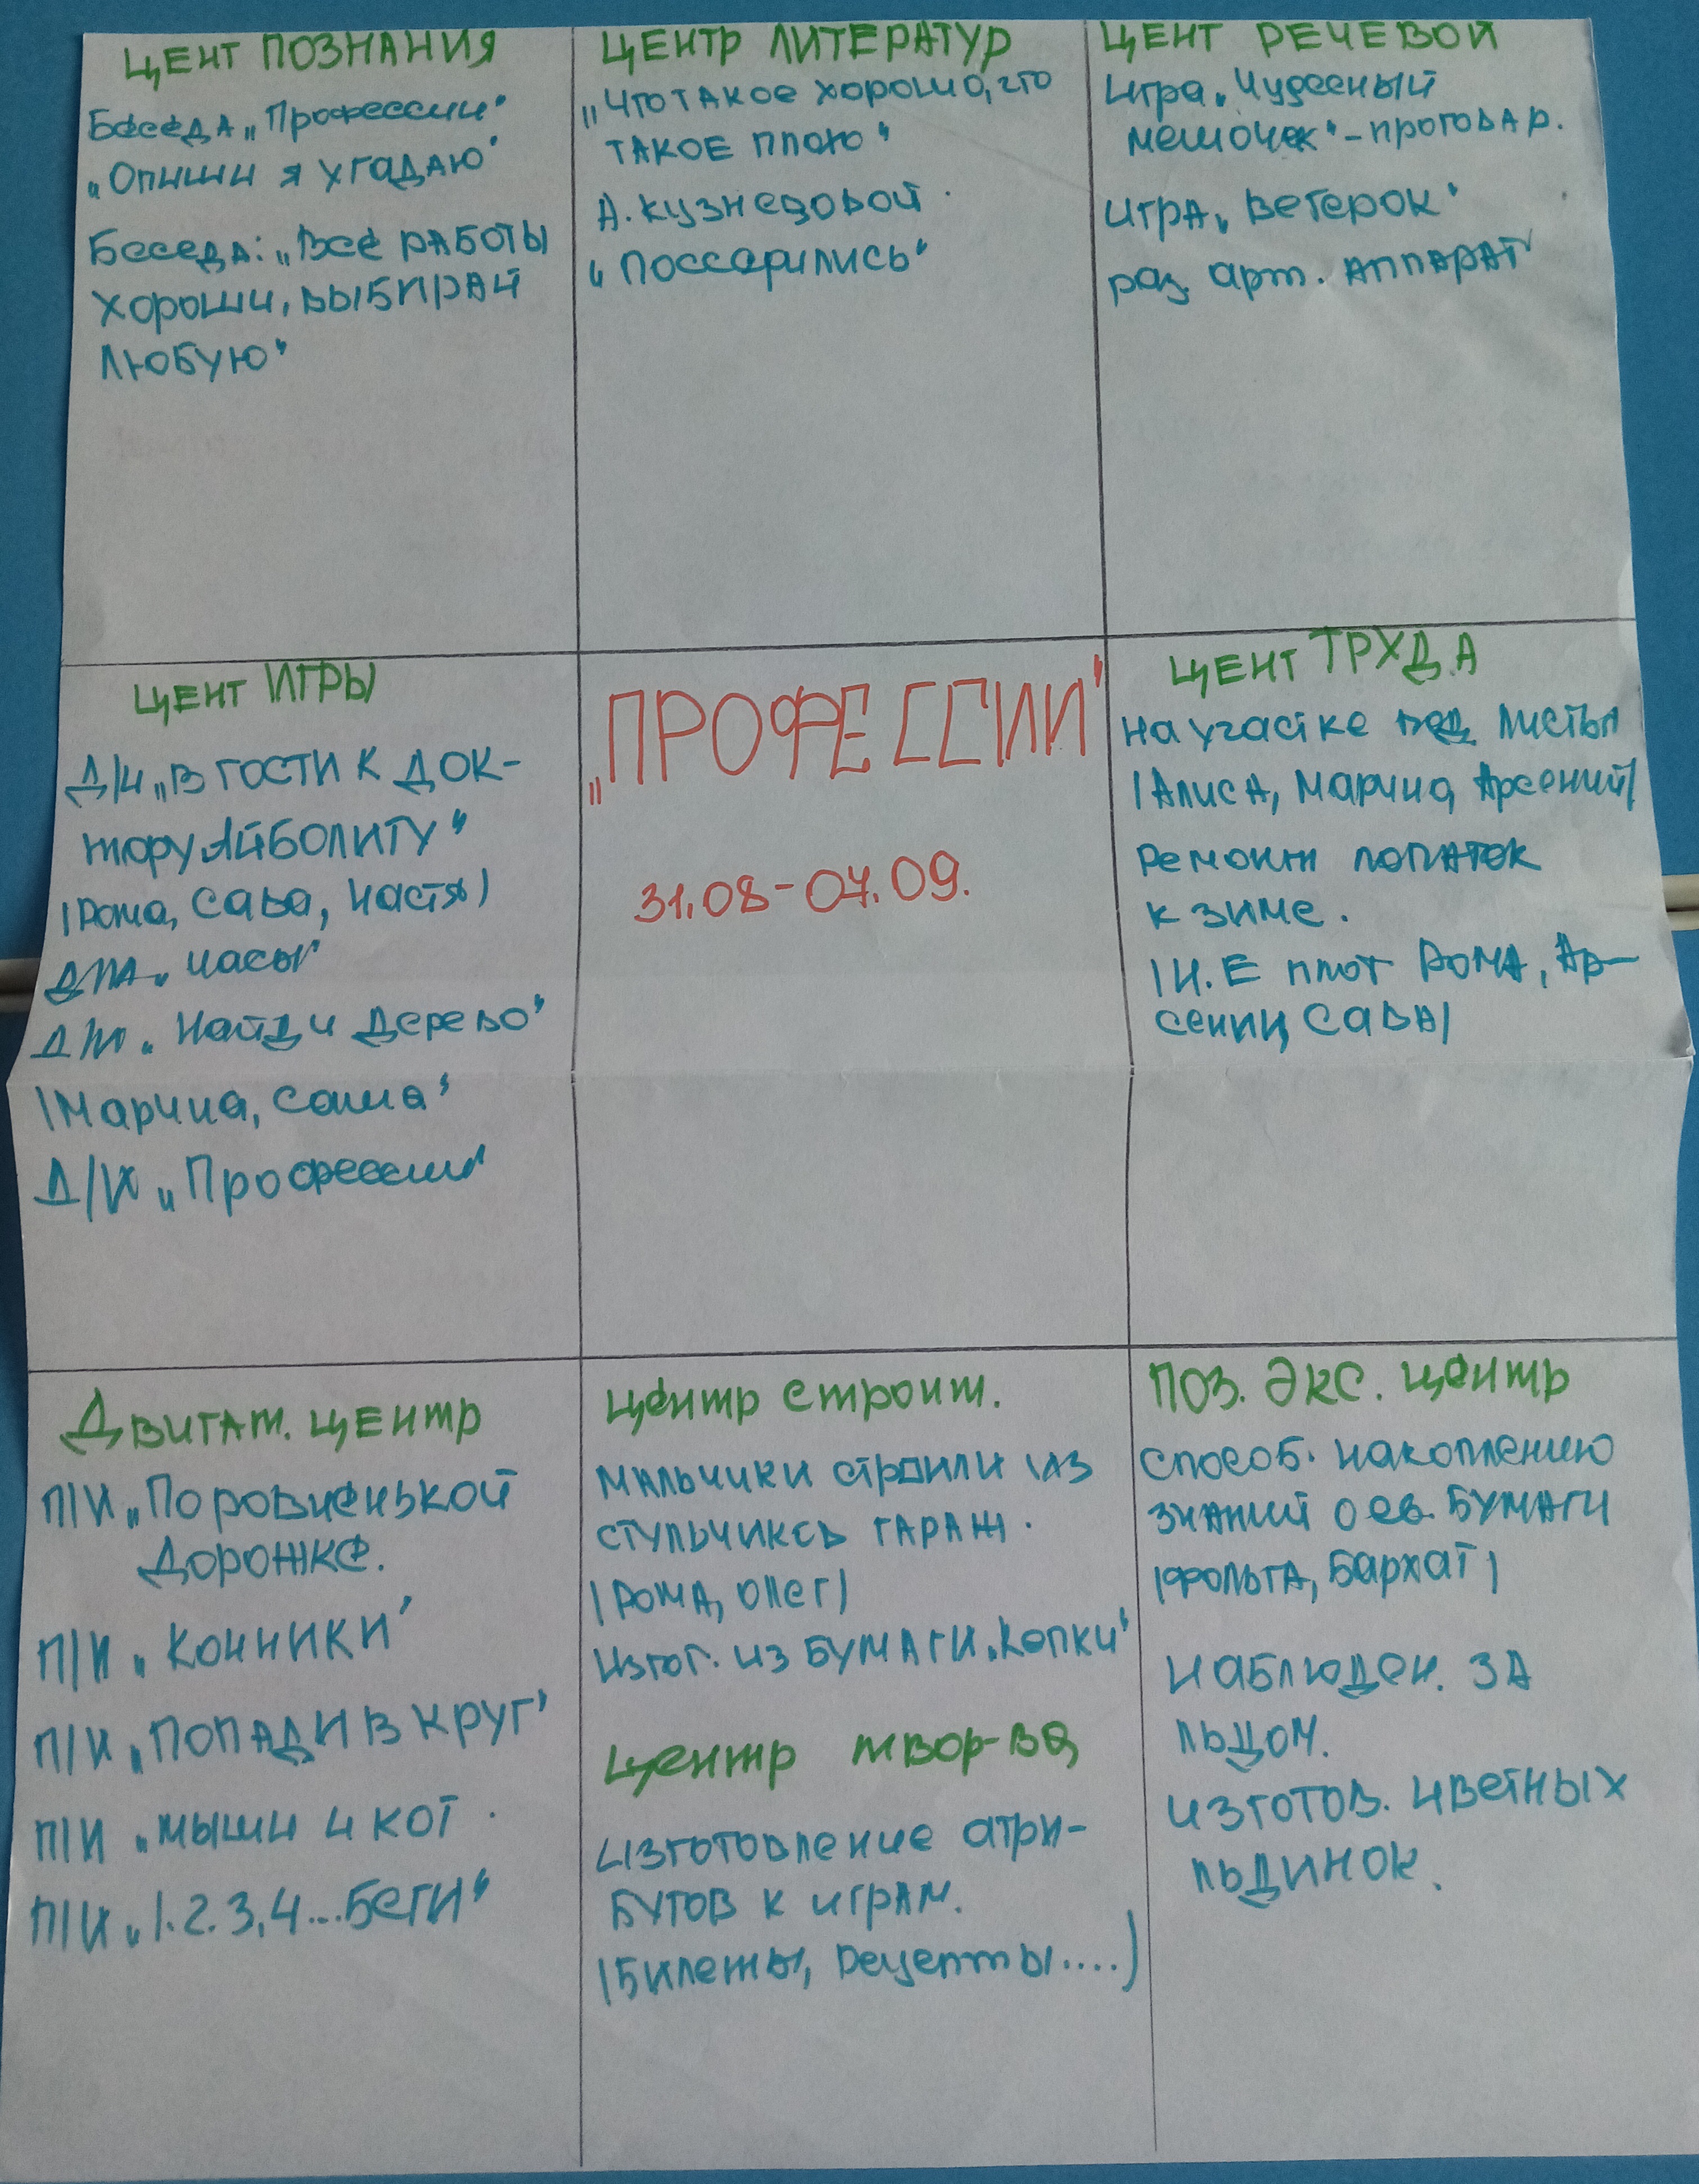 ЦЕНТ ПОЗНАНИЯ
Беседа „Профессии"
„Опиши я угадаю"
Беседа: „Все РАБОТЫ
хороши, выбирай
любую"
ЦЕНТР ЛИТЕРАТУР
„Что такое хорошо, что
такое плохо"
А. Кузнецовой.
„Поссорились"
ЦЕНТ РЕЧЕВОЙ
Игра „Чудесный
мешочек" - проговар.
Игра „Ветерок"
раз. арт. аппарат
ЦЕНТ ИГРЫ
Д/И „В гости к док-
тору Айболиту"
(Рома, Сава, Настя)
„Часы"
„Найди дерево"
(Марина, Саша"
Д/И „Профессии"
„ПРОФЕССИИ"
31.08-04.09.
ЦЕНТ ТРУДА
На участке листья
(Алиса, Марина, Арсений)
Ремонт лопаток
к зиме.
(И.Е плот Рома, Ар-
сений, Сава)
Двигат. центр
П/И „По ровненькой
дорожке.
П/И „Конники"
П/И „Попади в круг"
П/И „Мыши и кот.
П/И „1.2.3,4...Беги"
Центр строит.
Мальчики строили из
стульчиков гараж.
(Рома, Олег)
Изгот. из бумаги „Копки"
Центр твор-ва
Изготовление атри-
бутов к играм.
(Билеты, рецепты....)
Поз. экс. центр
Способ. накоплению
знаний о св. бумаги
(фольга, бархат)
Наблюден. за
льдом.
Изготов. цветных
льдинок.